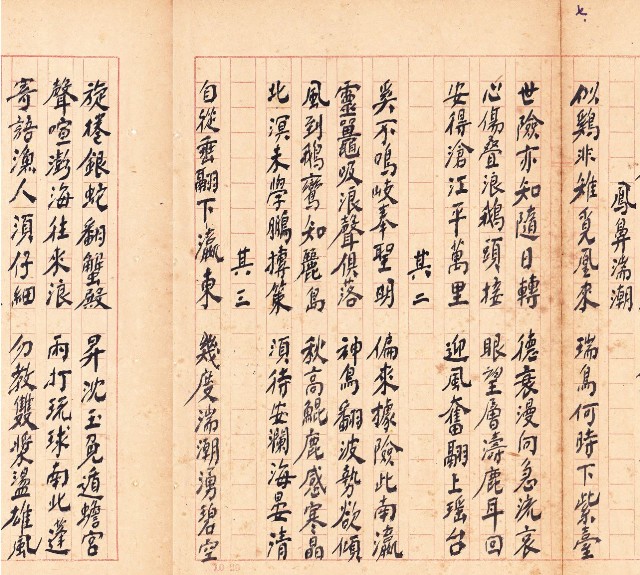 七、
鳳鼻湍潮
似鷄非雉覓凰來 瑞鳥何時下紫臺
世險亦知隨日轉 德衰漫向急流哀
心傷叠浪鵝頭接 眼望層濤鹿耳回
安得滄江平萬里 迎風奮翮上瑤台
其二
奚不鳴岐奉聖明 偏來據險此南瀛
靈鼉吸浪聲俱落 神鳥翻波勢欲傾
風到鵝鸞知麗島 秋高鯤鹿感寒晶
北溟未學鵬摶策 須待安瀾海晏清
其三
自從垂翮下瀛東 幾度湍潮湧碧空
旋捲銀蛇翻蟹殿 昇沈玉兔遁蟾宮
聲喧澎海往來浪 雨打琉球南北蓬
寄語漁人須仔細 勿教雙槳盪雄風